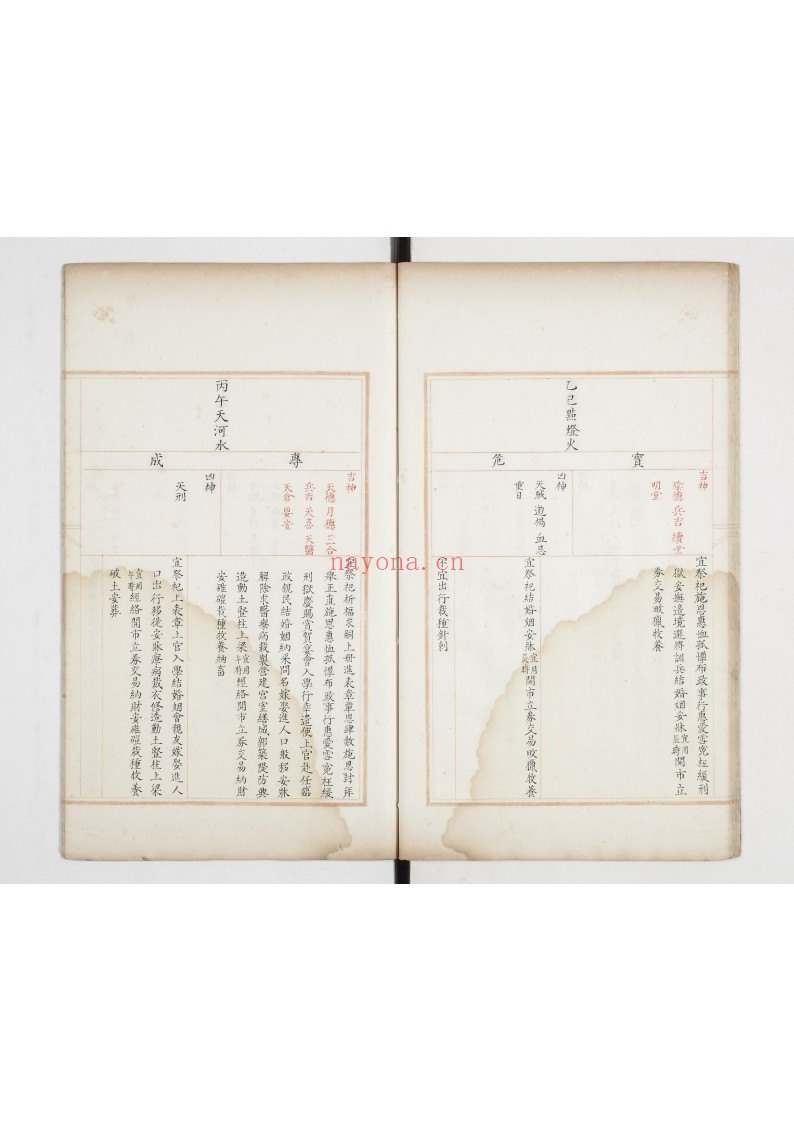 乙巳㸃燈火
寳
危
吉神
陰德 兵吉 續世
明堂
凶神
天賊 遊禍 血忌
重日
宜祭祀施恩惠恤孤惸布政事行惠愛雪寃枉緩刑
獄安撫邊境選將訓兵結婚姻安牀宜用辰時開市立
券交易畋獵牧養
宜祭祀結婚姻安牀宜用辰時開市立券交易畋獵牧養
不宜出行栽種針刺
丙午天河水
專
成
吉神
天德 月德 三合
兵吉 天喜 天醫
天倉 要安
凶神
天刑
宜祭祀祈福求嗣上冊進表章覃恩肆赦施恩封拜
舉正直施恩惠恤孤惸布政事行惠愛雪寃枉緩
刑獄慶賜賞賀宴會入學行幸遣使上官赴任臨
政親民結婚姻納采問名嫁娶進人口般移安牀
解除求醫療病裁製營建宮室繕城郭築隄防興
造動土豎柱上梁宜用午時經絡開市立券交易納財
安碓磑栽種牧養納畜
宜祭祀上表章上官入學結婚姻會親友嫁娶進人
口出行移徙安牀療病裁衣修造動土豎柱上梁
宜用午時經絡開市立券交易納財安碓磑栽種牧養
破土安葬
nayona.cn